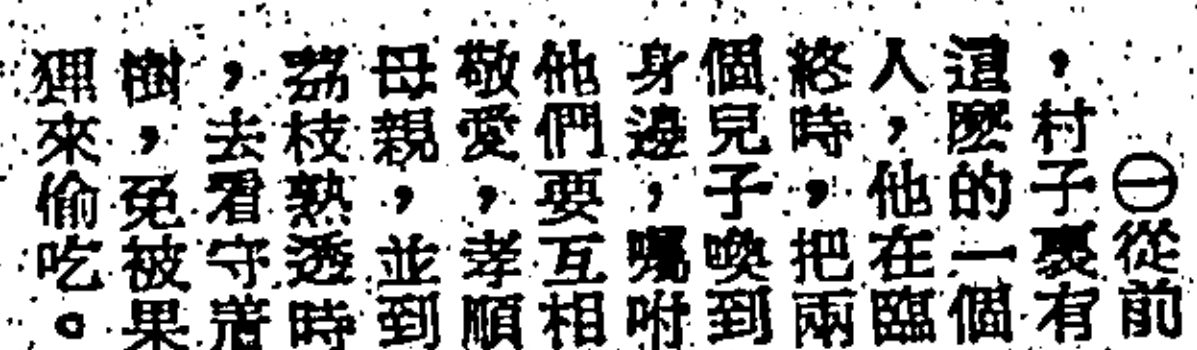 ㊀從前
，村子裏有
這麽的一個
人，他在臨
終時，把兩
個兒子喚到
身邊，囑咐
他們要互相
敬愛，孝順
母親，並到
荔枝熟透時
，去看守着
樹，免被果
狸來偷吃。